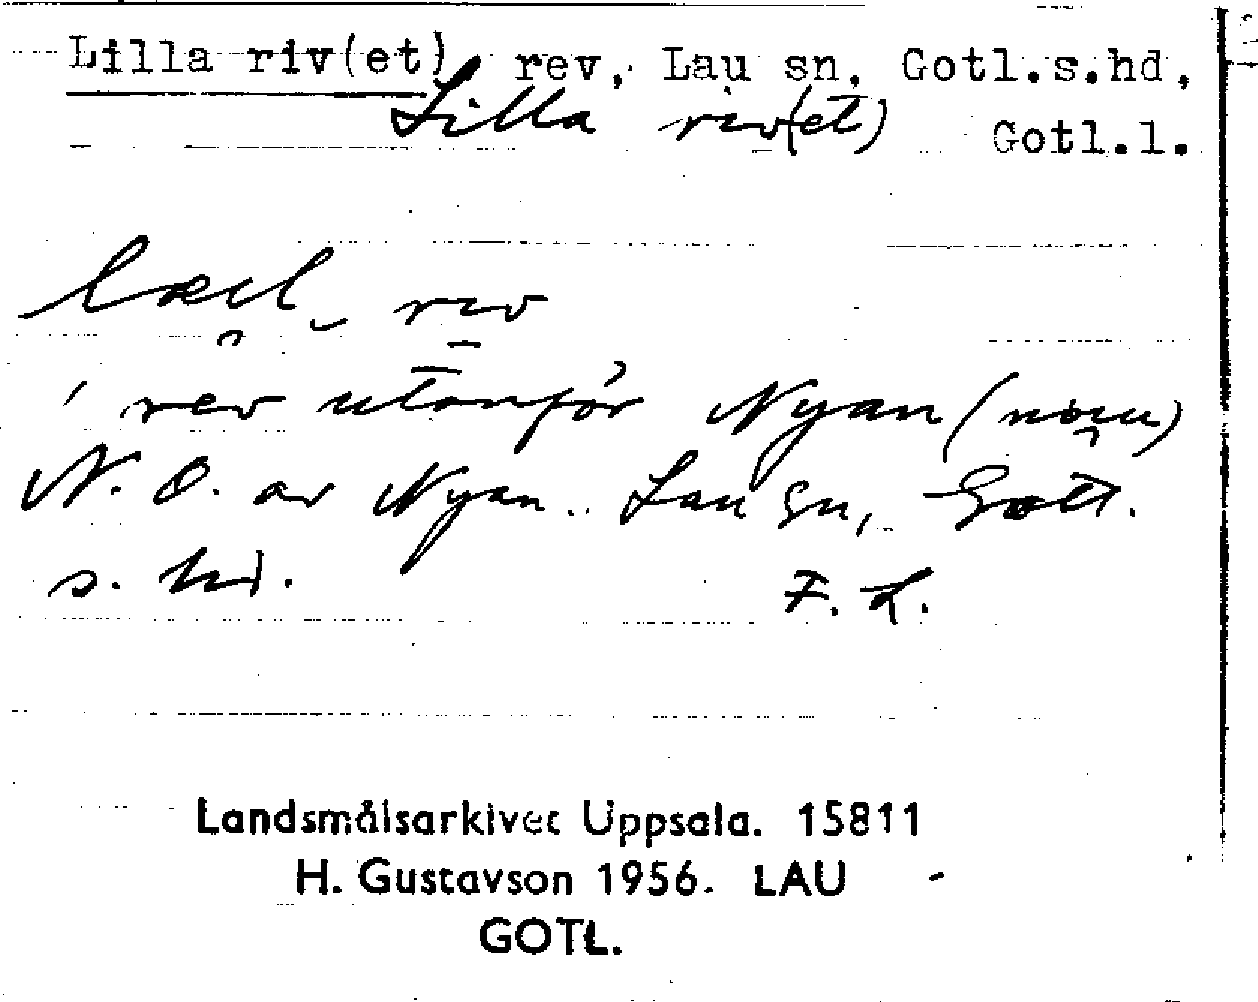 Lilla riv(et), rev, Lau sn, Gotl.s.hd,
Lilla riv(et)
Gotl.l.
rev
rev utanför Nyan
N.O. av Nyan. Lau Sn, Gotl.
s. hd.
F. L.
Landsmålsarkivet Uppsala. 15811
H. Gustavson 1956. LAU
GOTL.